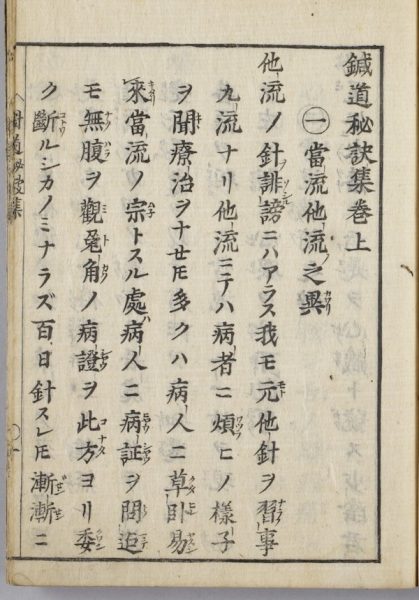 鍼道秘訣集巻上
㊀當流他流之異
他流ノ針誹謗ニハアラス我モ元他針ヲ習事
九流ナリ他流ニテハ病者ニ煩ヒノ様子
ヲ聞療治ヲナせ𪜈多クハ病人ニ草臥易
来當流ノ宗トスル處病人ニ病証ヲ問迠
モ無腹ヲ觀兎角ノ病證ヲ此方ヨリ委
ク斷ルシカノミナラズ百日針スレ𪜈漸漸ニ